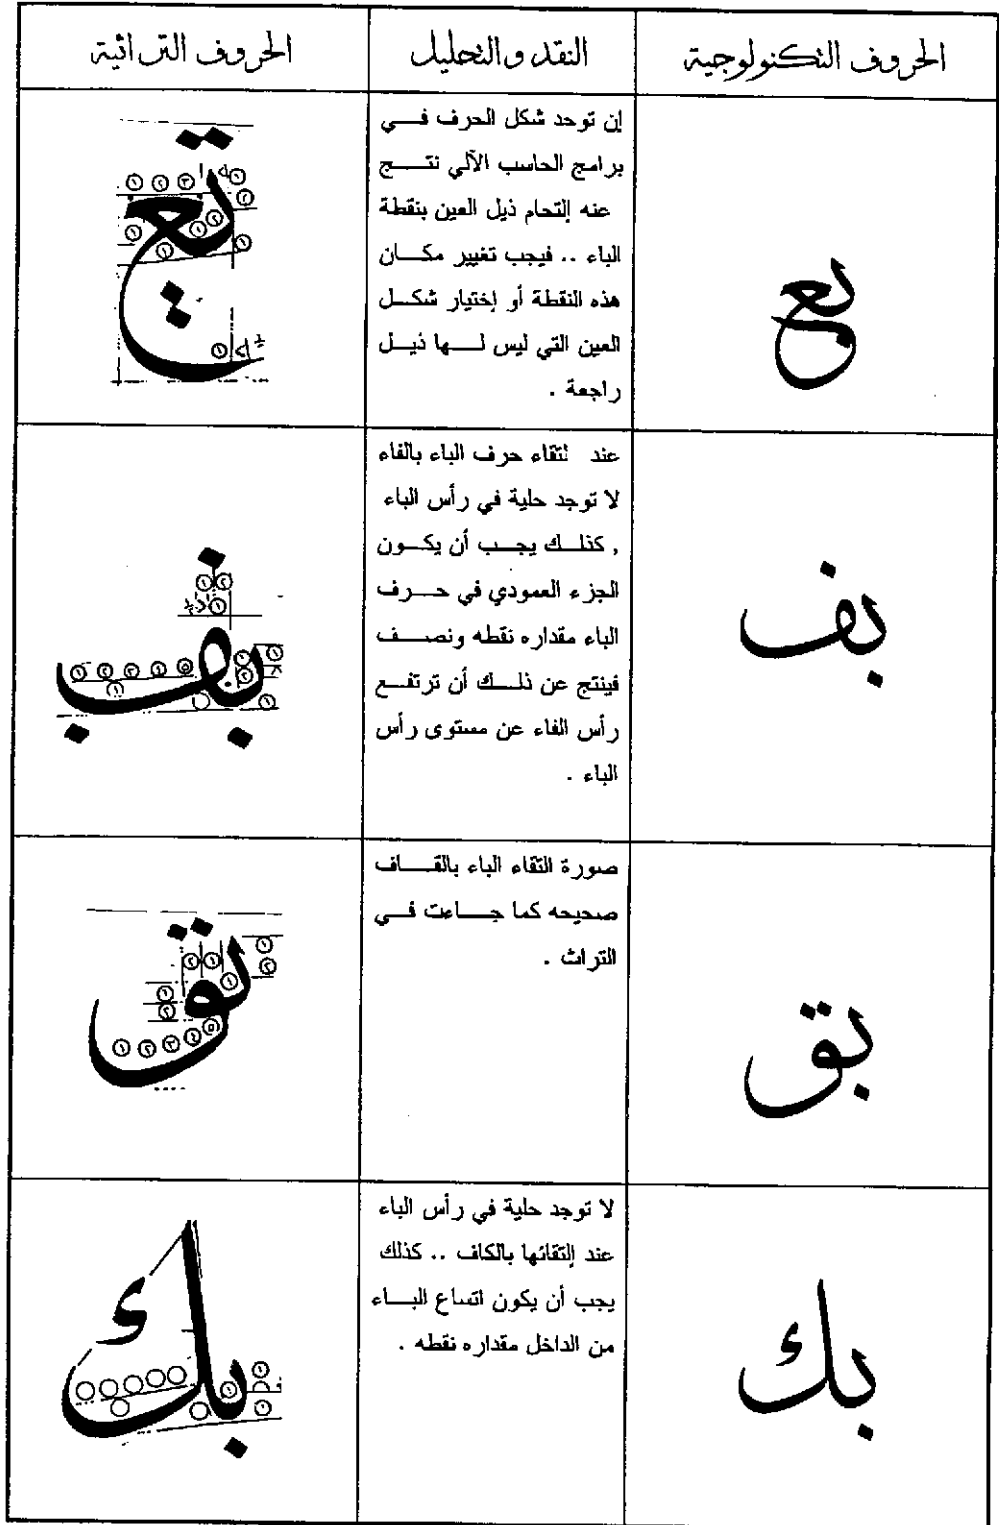 الحروف التكنولوجية
النقد والتحليل
الحروف التراثية
بع
إن توحد شكل الحرف في
برامج الحاسب الآلي نتج
عنه إلتحام ذيل العين بنقطة
الباء .. فيجب تغيير مكان
هذه النقطة أو إختيار شكل
العين التي ليس لها ذيل
راجعة .
بف
عند لتقاء حرف الباء بالفاء
لا توجد حلية في رأس الباء
, كذلك يجب أن يكون
الجزء العمودي في حرف
الباء مقداره نقطه ونصف
فينتج عن ذلك أن ترتفع
رأس الفاء عن مستوى رأس
الباء .
بق
صورة التقاء الباء بالقاف
صحيحه كما جاءت في
التراث .
بك
لا توجد حلية في رأس الباء
عند إلتقائها بالكاف .. كذلك
يجب أن يكون اتساع الباء
من الداخل مقداره نقطه .
بك